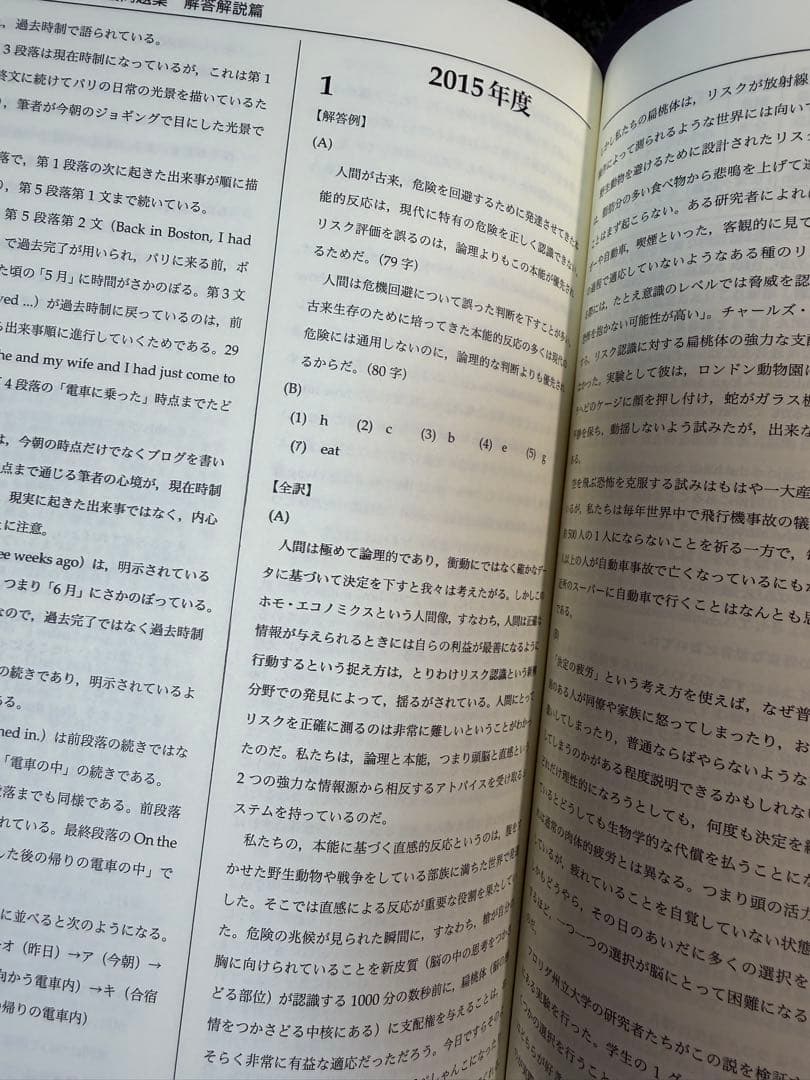 問題集 解答解説篇
，過去時制で語られている。
3段落は現在時制になっているが，これは第1
終文に続けてパリの日常の光景を描いているた
，筆者が今朝のジョギングで目にした光景で
落で，第1段落の次に起きた出来事が順に描
，第5段落第1文まで続いている。
第5段落第2文（Back in Boston, I had
で過去完了が用いられ，パリに来る前，ボ
た頃の「5月」に時間がさかのぼる。第3文
yed ...）が過去時制に戻っているのは，前
ら出来事順に進行していくためである。29
he and my wife and I had just come to
「4段落の「電車に乗った」時点までたど
は，今朝の時点だけでなくブログを書い
点まで通じる筆者の心境が，現在時制
，現実に起きた出来事ではなく，内心
に注意。
ee weeks ago）は，明示されている
つまり「6月」にさかのぼっている。
なので，過去完了ではなく過去時制
の続きであり，明示されているよ
る。
ned in.）は前段落の続きではな
「電車の中」の続きである。
段落までも同様である。前段落
れている。最終段落の On the
した後の帰りの電車の中」で
に並べると次のようになる。
オ（昨日）→ア（今朝）→
向かう電車内）→キ（合宿
の帰りの電車内）
2015年度
1
【解答例】
(A)
人間が古来，危険を回避するために発達させてきた本
能的反応は，現代に特有の危険を正しく認識できない。
リスク評価を誤るのは，論理よりもこの本能が優先され
るためだ。（79字）
人間は危機回避について誤った判断を下すことが多い。
古来生存のために培ってきた本能的反応の多くは現代の
危険には通用しないのに，論理的な判断よりも優先され
るからだ。（80字）
(B)
(1) h (2) c (3) b (4) e (5) g
(7) eat
【全訳】
(A)
人間は極めて論理的であり，衝動にではなく確かなデー
タに基づいて決定を下すと我々は考えたがる。しかしこの
ホモ・エコノミクスという人間像，すなわち，人間は正確な
情報が与えられるときには自らの利益が最善になるように
行動するという捉え方は，とりわけリスク認識という新興
分野での発見によって，揺るがされている。人間にとって
リスクを正確に測るのは非常に難しいということがわかっ
たのだ。私たちは，論理と本能，つまり頭脳と直感という
2つの強力な情報源から相反するアドバイスを受け取るシ
ステムを持っているのだ。
私たちの，本能に基づく直感的反応というのは，腹をす
かせた野生動物や戦争をしている部族に満ちた世界で発達
した。そこでは直感による反応が重要な役割を果たしてい
た。危険の兆候が見られた瞬間に，すなわち，槍が自分の
胸に向けられていることを新皮質（脳の中の思考をつかさ
どる部位）が認識する1000分の数秒前に，扁桃体（脳の感
情をつかさどる中核にある）に支配権を与えることは，お
そらく非常に有益な適応だっただろう。今日ですらその
ぺしゃんこになった
しかし私たちの扁桃体は，リスクが放射線
によって測られるような世界には向いて
野生動物を避けるために設計されたリス
は，脂肪分の多い食べ物から悲鳴を上げて逃
ことはまず起こらない。ある研究者によれば
や自動車，喫煙といった，客観的に見て
過程で適応していないようなある種のリ
には，たとえ意識のレベルでは脅威を認
を抱かない可能性が高い」。チャールズ・
リスク認識に対する扁桃体の強力な支配
なかった。実験として彼は，ロンドン動物園に
ヘビのケージに顔を押し付け，蛇がガラス板
平静を保ち，動揺しないよう試みたが，出来な
ある。
空を飛ぶ恐怖を克服する試みはもはや一大産
いるが，私たちは毎年世界中で飛行機事故の犠
約500人の1人にならないことを祈る一方で，
人以上の人が自動車事故で亡くなっているにもか
近所のスーパーに自動車で行くことはなんとも思
である。
(B)
「決定の疲労」という考え方を使えば，なぜ普
のある人が同僚や家族に怒ってしまったり，お
してしまったり，普通ならばやらないような
してしまうのかがある程度説明できるかもしれない
どれだけ理性的になろうとしても，何度も決定を
ているとどうしても生物学的な代償を払うことにな
は通常の肉体的疲労とは異なる。つまり頭の活力
しているが，疲れていることを自覚していない状態
しかもどうやら，その日のあいだに多くの選択を
するほど，一つ一つの選択が脳にとって困難になる
フロリダ州立大学の研究者たちがこの説を検証
ある実験を行った。学生の1グ
つかの選択を行うこと